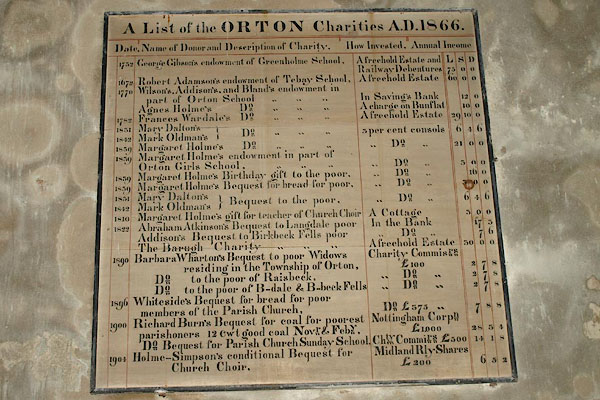 A List of the ORTON Charities A.D. 1866.
Date, Name of Donor and Description of Charity. How Invested. Annual Income
L S D
1752 George Gibson's endowment of Greenholme School. A freehold Estate and
Railway Debentures 75 0 0
1672 Robert Adamson's endowment of Tebay School. A freehold Estate 60 0 0
Wilson's, Addison's, and Bland's endowment in
part of Orton School In Saving's Bank 12 0
Agnes Holme's Do A charge on Bunflat 10 0
1782 Frances Wardale's Do A freehold Estate 29 10 0
1851 Mary Dalton's
1842 Mark Oldman's } Do 3 per cent consols 6 4 6
1859 Margaret Holme's Do " Do " 21 0 0
1859 Margaret Holme's endowment in part of
Orton Girls School, " Do " 5 0 0
1859 Margaret Holme's Birthday gift to the poor, " Do "
1859 Margaret Holme's Bequest for bread for poor, " Do "
1851 Mary Dalton's
1842 Mark Oldman's } Bequest to the poor, " Do " 6 4 6
1810 Margaret Holme's gift for teacher of Church Choir A Cottage 5 0 0
1822 Abraham Atkinson's Bequest to Langdale poor In the Bank
Addison's Bequest to Birkbeck Fells poor " Do "
The Barugh Charity A freehold Estate 50 0 0
1890 Barbara Wharton's Bequest to poor Widows Charity Commissrs
residing in the Township of Orton, £100
Do to the poor of Raisbeck, " Do "
Do to the poor of B-dale & B-beck Fells " Do "
1896 Whiteside's Bequest for bread for poor
members of the Parish Church, Do £575 " 7 8 8
1900 Richard Burn's Bequest for coal for poorest Nottingham Corpn
parishoners 12 cwt good coal Novr & Feby. £1000 28 5 4
Do Bequest for Parish Church Sunday School. Chy Commrs £500 14 1 8
1904 Holme-Simpson's conditional Bequest for Midland Rly Shares
Church Choir. £200 6 5 2